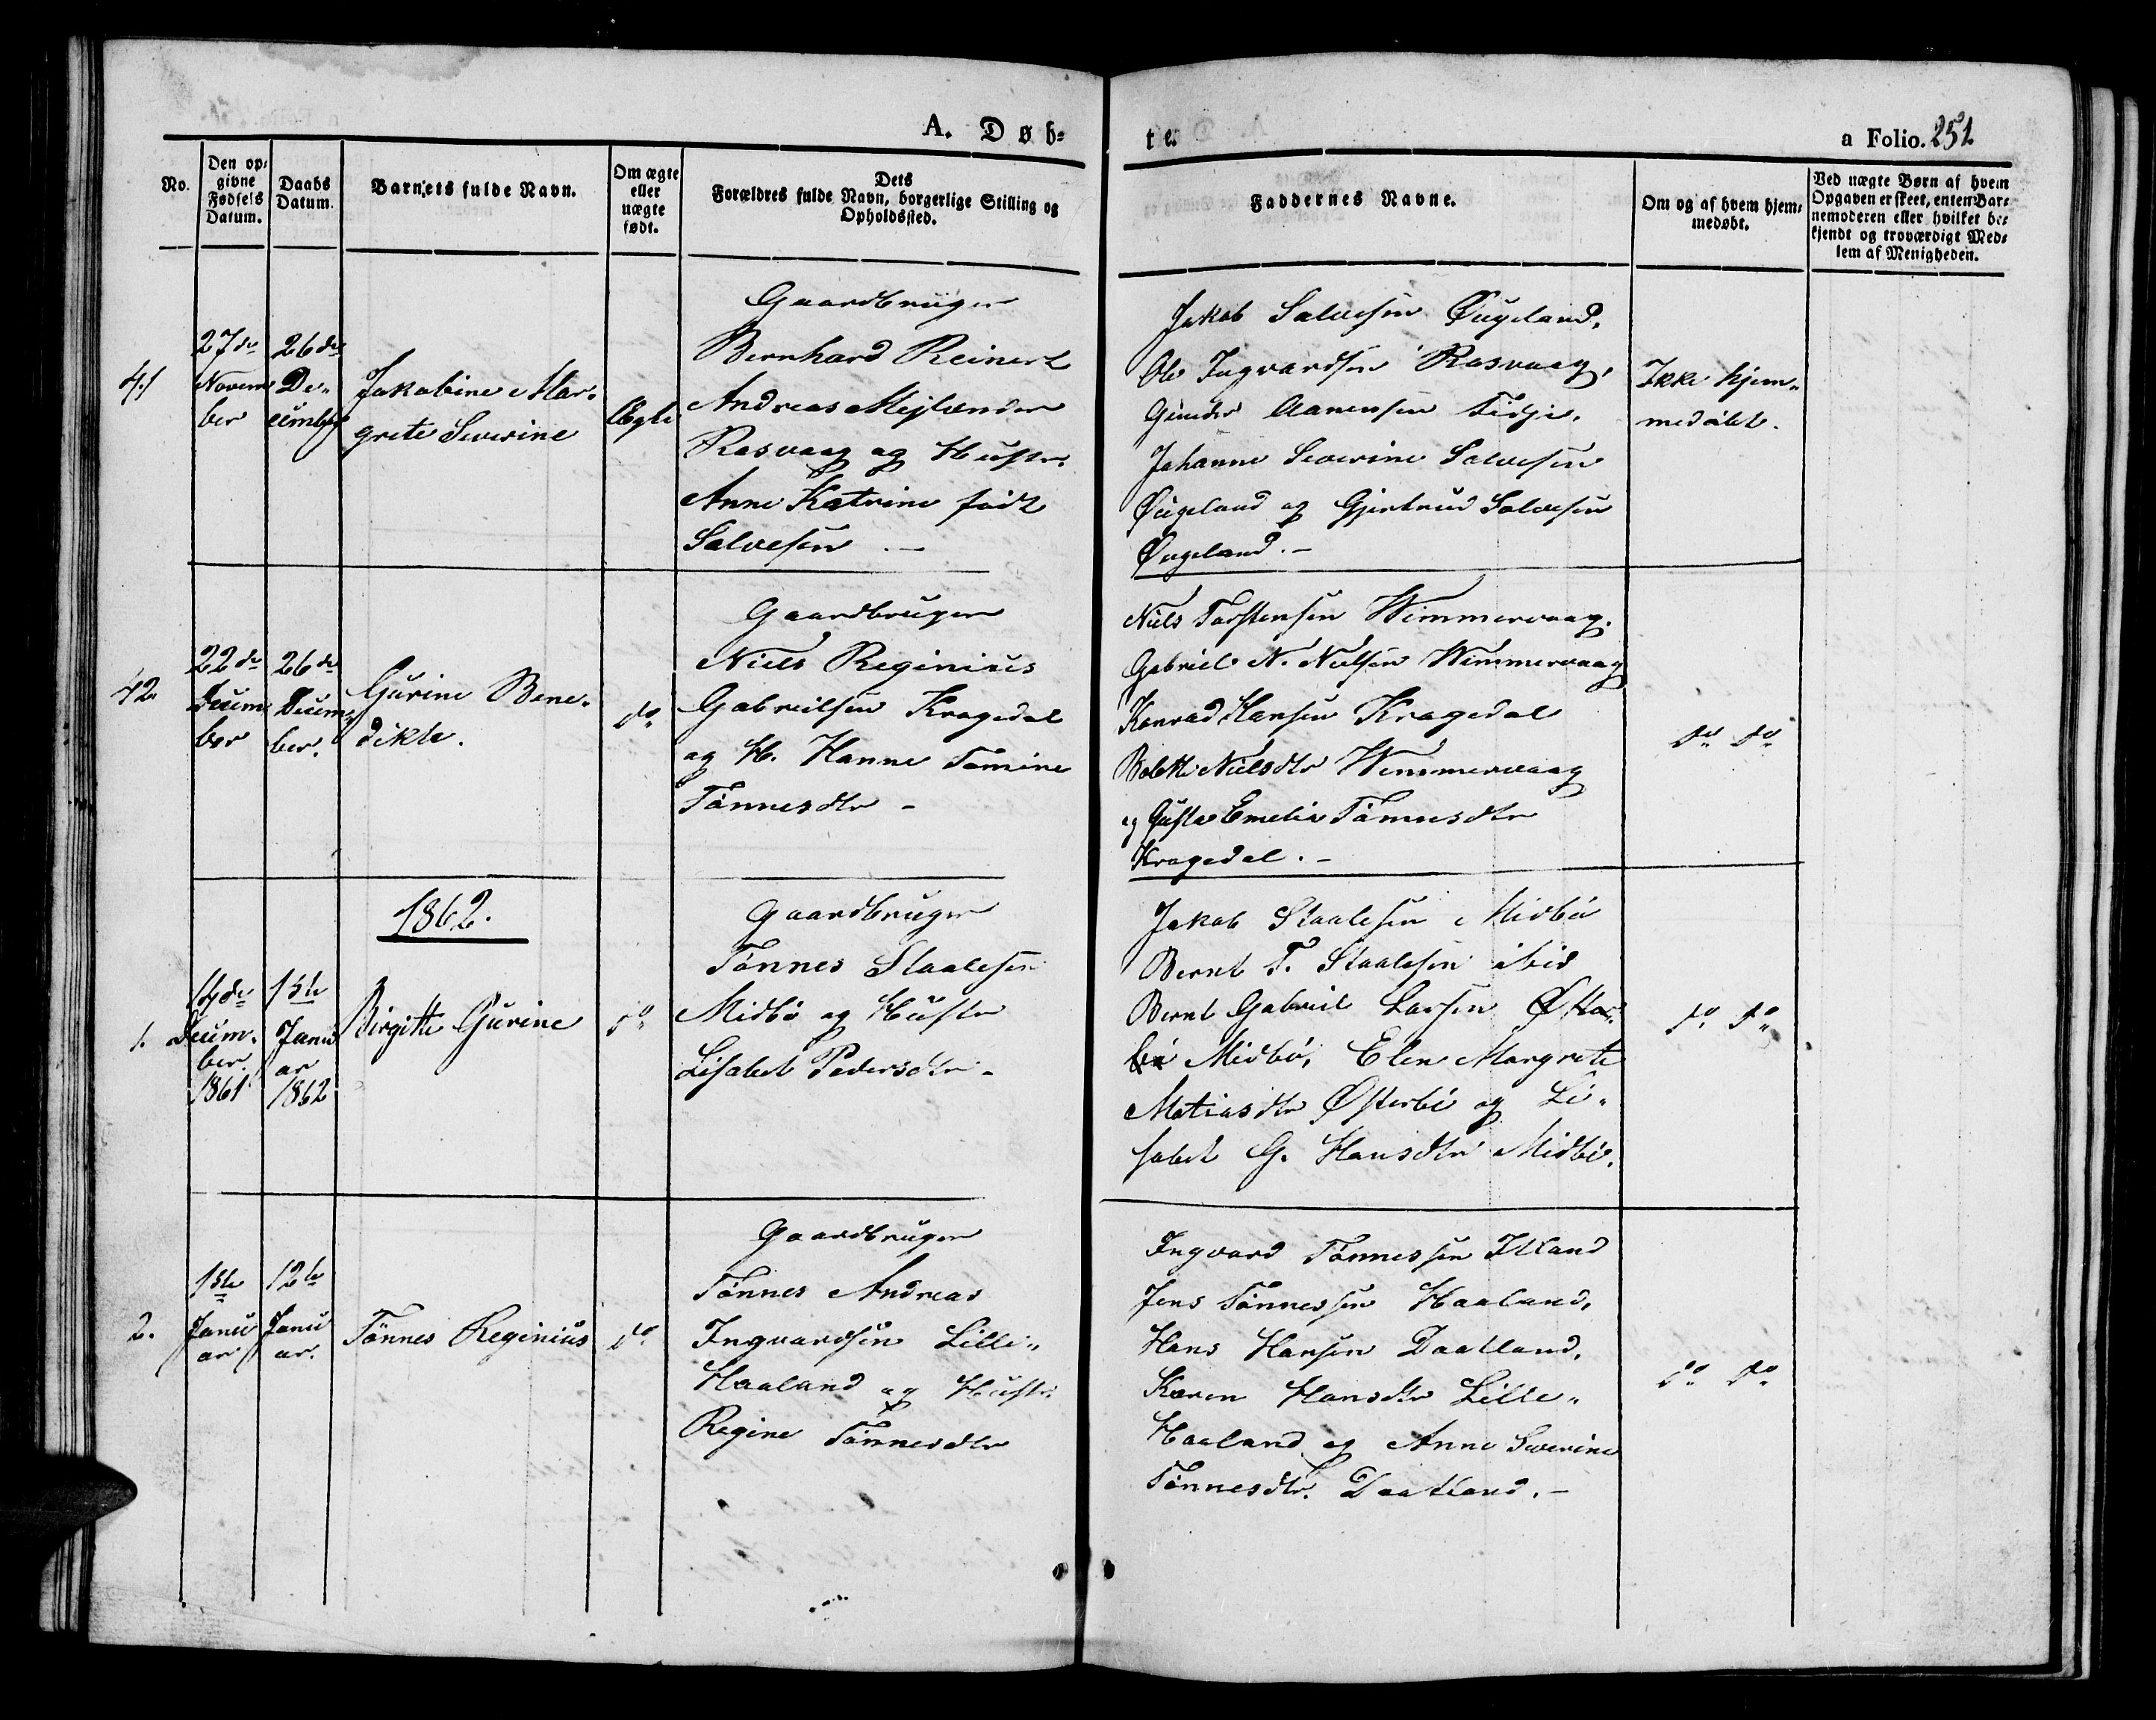 A. Døb-
te.
a Folio. 252
No.
Den op-
givne
Fødsels
Datum.
Daabs
Datum.
Barnets fulde Navn.
Om ægte
eller
uægte
født.
Dets
Forældres fulde Navn, borgerlige Stilling og
Opholdssted.
Faddernes Navne.
Om og af hvem hjem-
medøbt.
Ved uægte Børn af hvem
Opgaven er skeet, enten Bar-
nemoderen eller hvilket be-
kjendt og troværdigt Med-
lem af Menigheden.
41
27de
Novem
ber
26de
De-
cember
Jakobine Mar-
grete Severine
Ægte
Gaardbruger
Bernhard Reinert
Andreas Mejlænder
Rasvaag og Hustr.
Anne Katrine født
Salvesen. -
Jakob Salvesen Øugeland,
Ole Ingvardsen Rasvaag,
Gunder Aanensen Tidje,
Johanne Severine Salvesen
Øugeland og Gjertrud Salvesen
Øugeland. -
Ikke hjem-
medøbt.
42
22de
Decem
ber
26de
Decem-
ber.
Gurine Bene-
dikte.
do
Gaardbruger
Niels Reginius
Gabrielsen Kragedal
og H. Hanne Tomine
Tønnesdtr -
Niels Torstensen Wimmervaag.
Gabriel N. Nielsen Wimmervaag
Konrad Hansen Kragedal
Bolette Nielsdtr Wimmervaag
og Gusta Emelie Tønnesdtr
Kragedal. -
do do
1862.
1.
14de
Decem-
ber.
1861
1ste
Janu
ar
1862
Birgitte Gurine
do
Gaardbruger
Tønnes Staalesen
Midbø og Hustr
Lisabet Pedersdtr -
Jakob Staalesen Midbø
Bernt T. Staalesen ibid
Bernt Gabriel Larsen Øster-
bø Midbø, Elen Margrete
Matiasdtr Østerbø og Li-
sabet G. Hansdtr Midbø.
do do
2.
1ste
Janu
ar
12te
Janu
ar.
Tønnes Reginius
do
Gaardbruger
Tønnes Andreas
Ingvardsen Lille-
Haaland og Hustr.
Regine Tønnesdtr
Ingvard Tønnessen Illand
Jens Tønnessen Haaland,
Hans Hansen Daatland,
Karen Hansdtr Lille-
Haaland og Anne Severine
Tønnesdtr. Daatland. -
do do